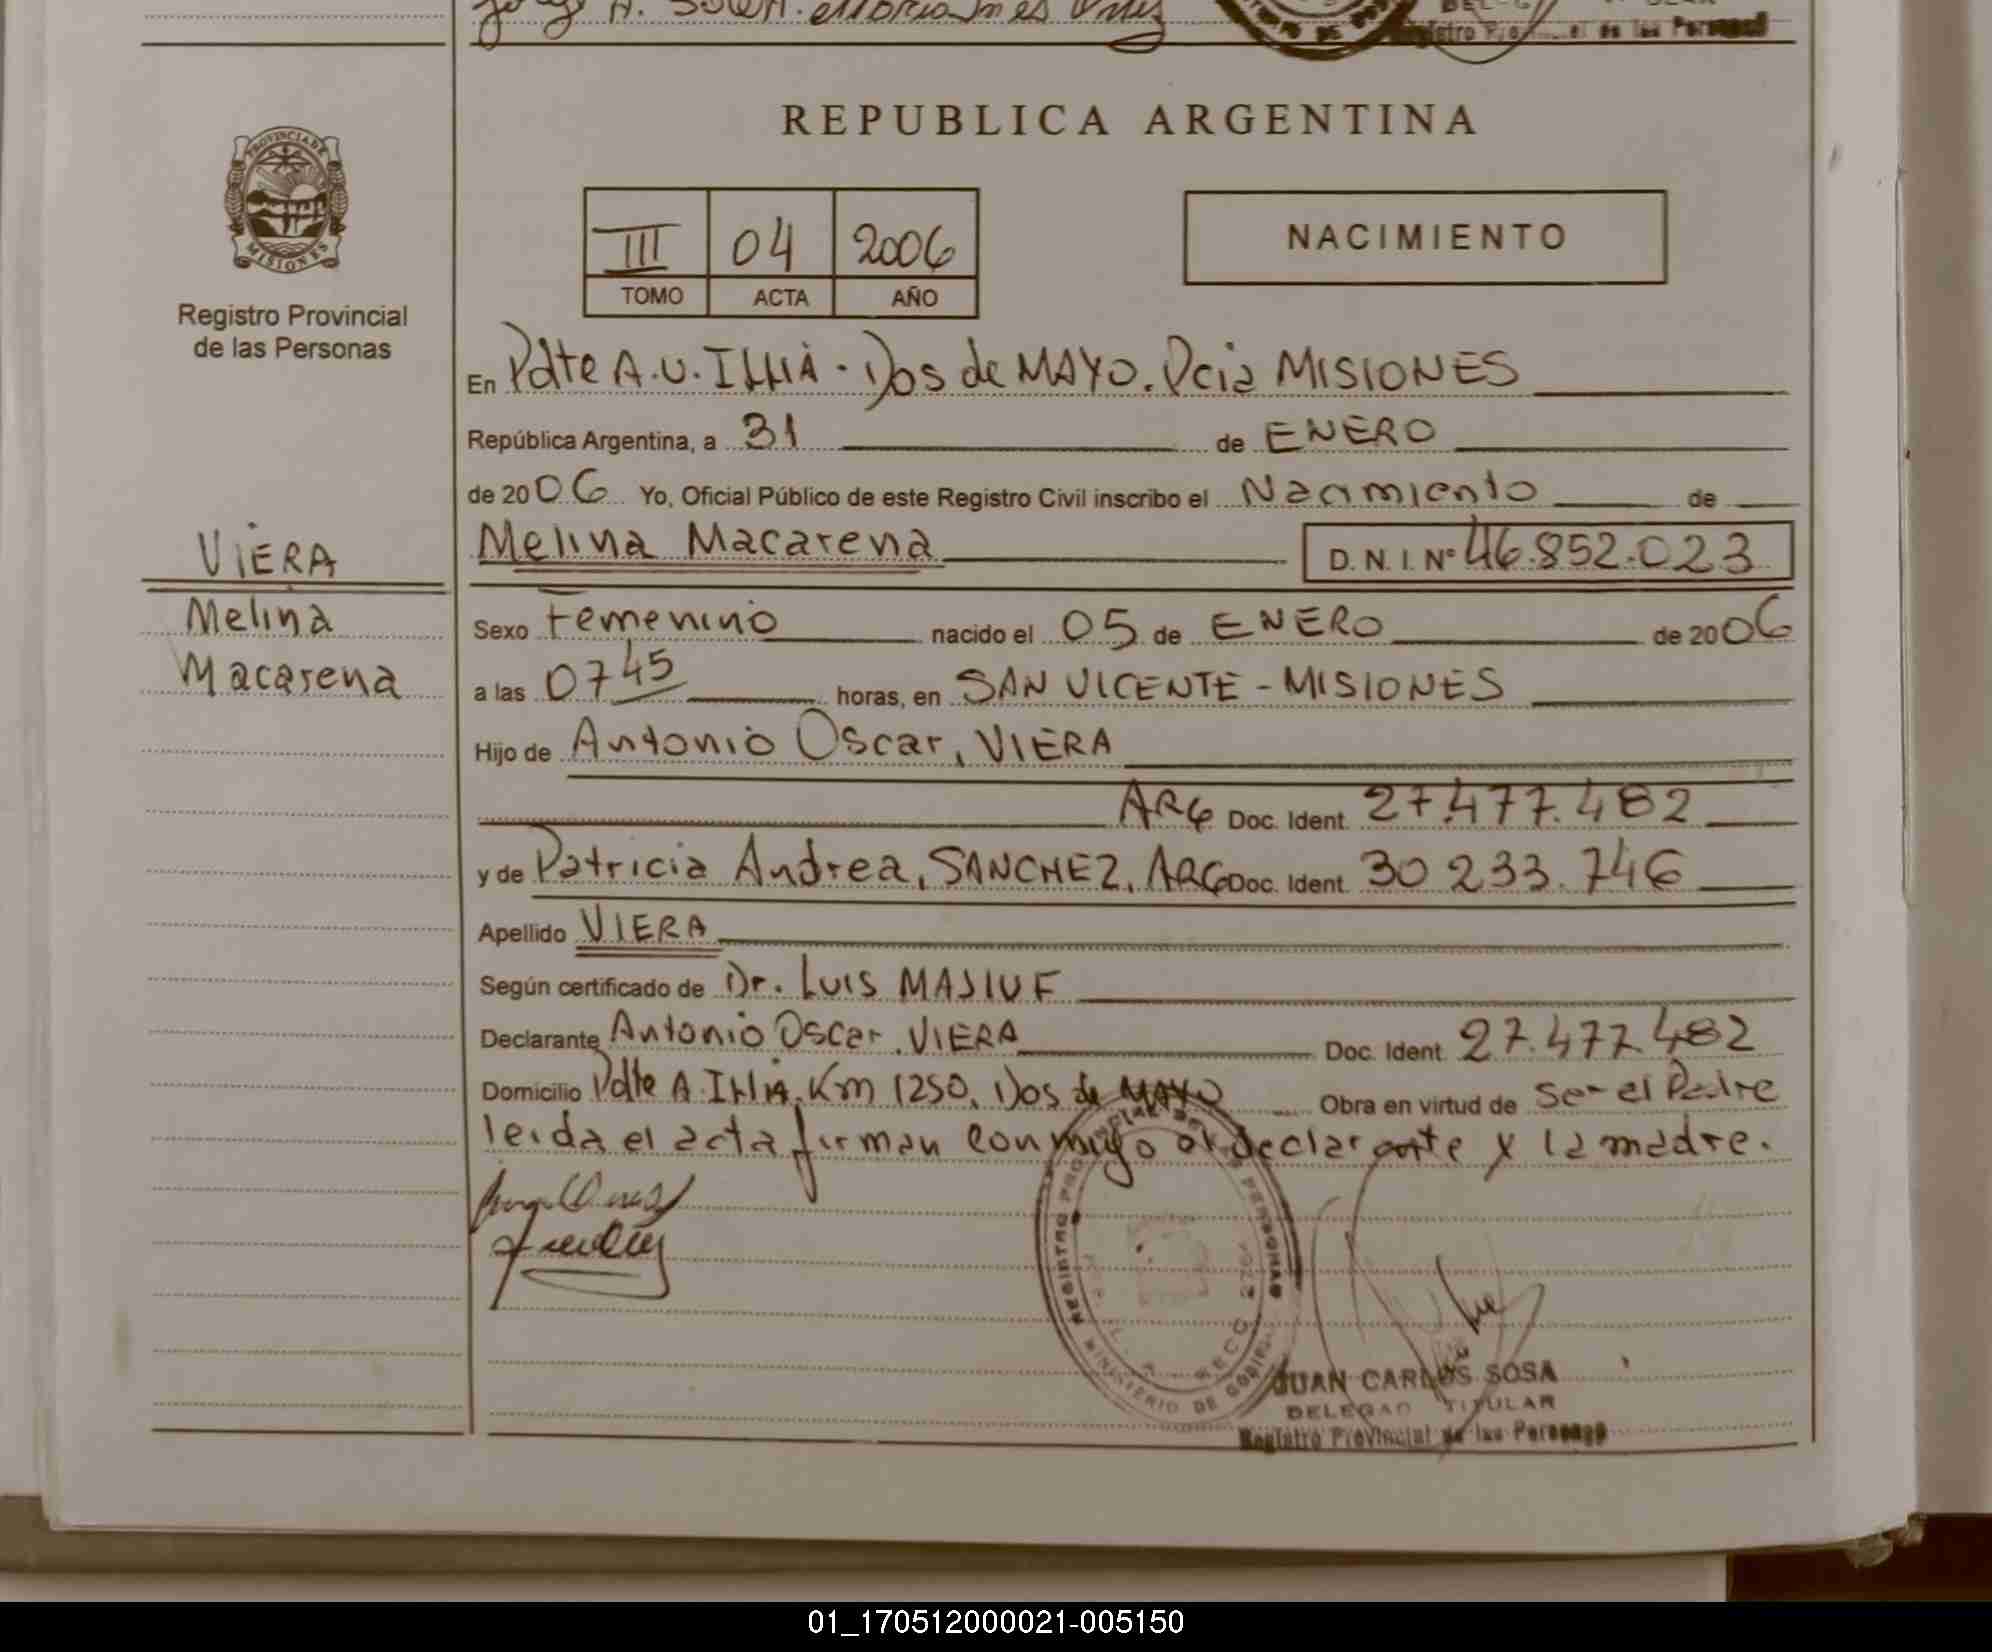 Jorge A. Sosa.
Registro Provincial de las Personas
REPUBLICA ARGENTINA
PROVINCIA DE MISIONES
Registro Provincial
de las Personas
III 04 2006
TOMO ACTA AÑO
NACIMIENTO
En Pdte A.U. ILLIA - Dos de MAYO. Pcia MISIONES
República Argentina, a 31 de ENERO
de 2006 Yo, Oficial Público de este Registro Civil inscribo el Nacimiento de
VIERA
Melina
Macarena
Melina Macarena D. N. I. Nº 46.852.023
Sexo Femenino nacido el 05 de ENERO de 2006
a las 0745 horas, en SAN VICENTE - MISIONES
Hijo de Antonio Oscar, VIERA
ARG Doc. Ident. 27.477.482
y de Patricia Andrea, SANCHEZ, ARG Doc. Ident. 30 233.746
Apellido VIERA
Según certificado de Dr. LUIS
Declarante Antonio Oscar, VIERA Doc. Ident. 27.477.482
Domicilio Pdte A. ILLIA. Km 1250, Dos de MAYO Obra en virtud de ser el Padre
leida el acta firman conmigo el declarante y la madre.
REGISTRO PROVINCIAL DE LAS PERSONAS
MINISTERIO DE GOBIERNO
JUAN CARLOS SOSA
DELEGADO TITULAR
Registro Provincial de las Personas
01_170512000021-005150